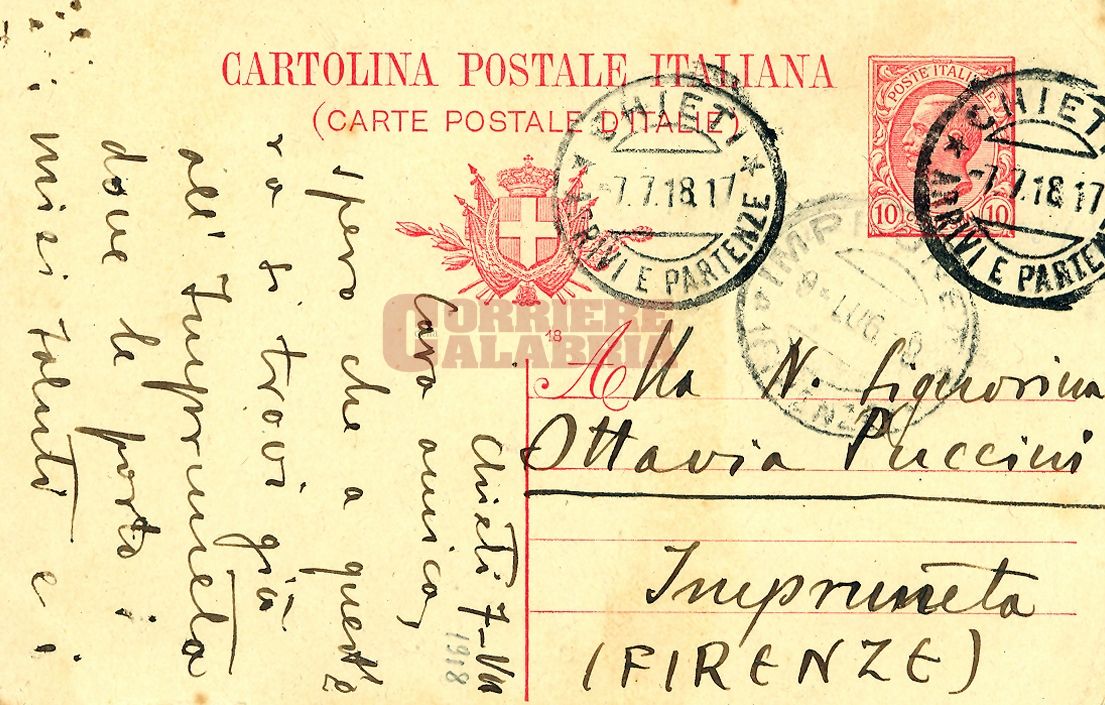 CARTOLINA POSTALE ITALIANA
(CARTE POSTALE D'ITALIE)
POSTE ITALIANE
10 10
CHIETI
-7.7.18.17
ARRIVI E PARTENZE
CHIETI
7.7.18.17
ARRIVI E PARTENZE
LUG
CORRIERE
CALABRIA
18
Alla N. Signorina
Ottavia Puccini
Impruneta
(FIRENZE)
Chieti 7-VII
1918
Cara amica,
spero che a quest'o
ra si trovi già
all'Impruneta
dove le porto i
miei saluti e i